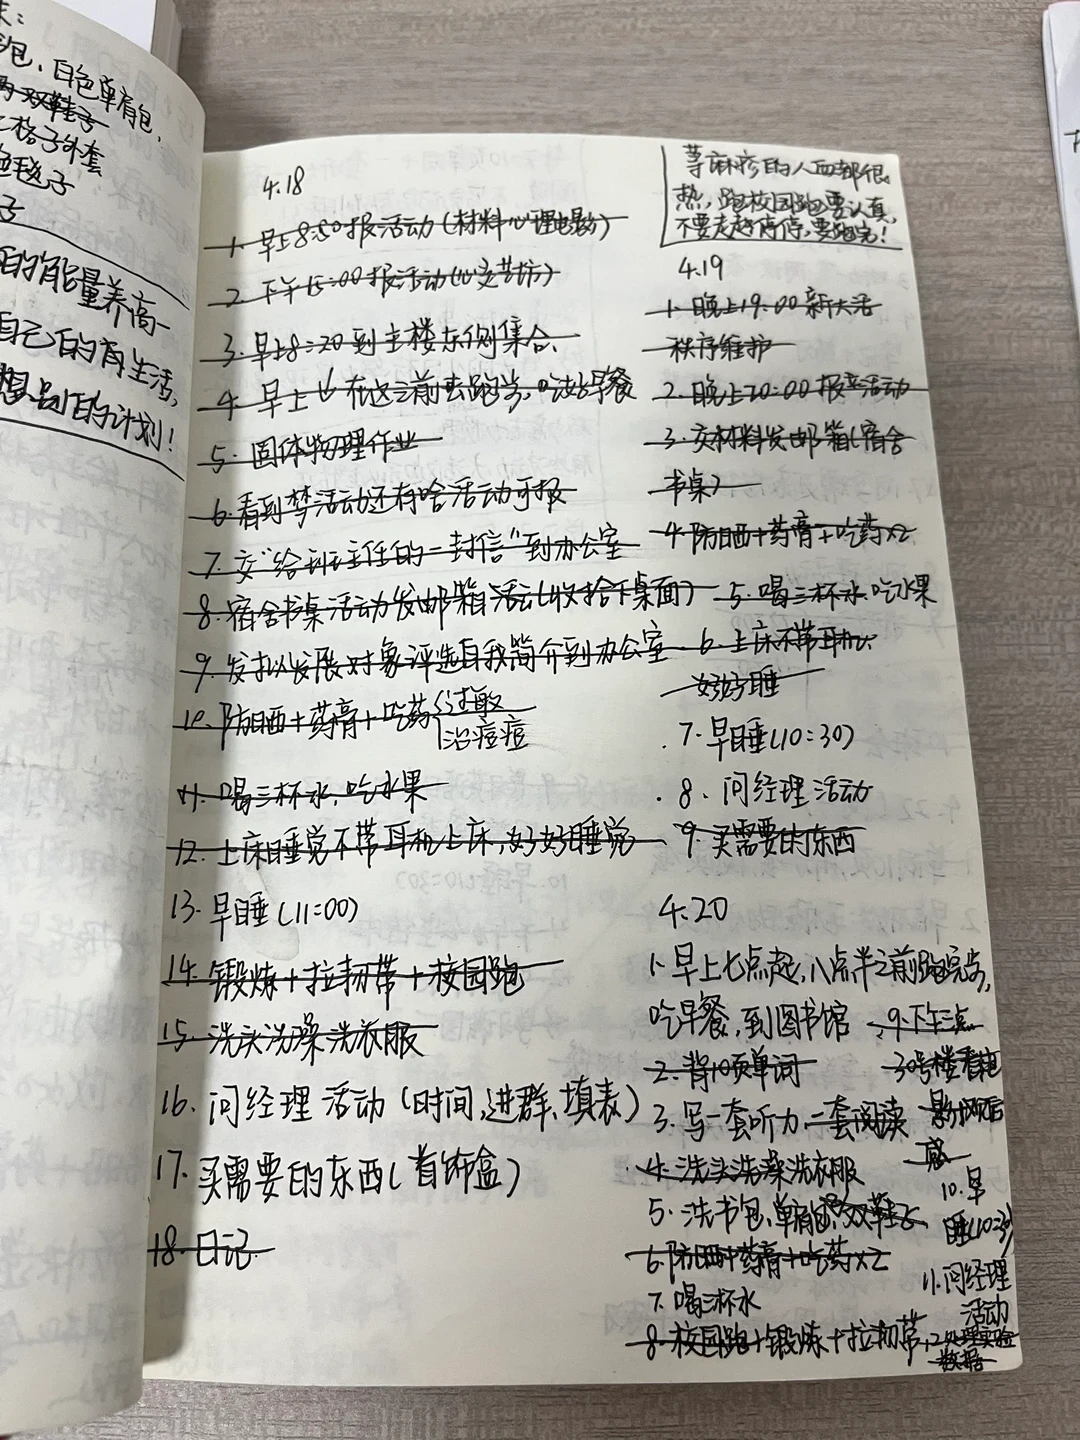 包、白色单肩包,
双鞋子
格子外套
的能量养高一
自己的再生活,
想别的计划!
4.18
1. 早上8:50报活动(材料心理电影)
2. 下午15:00报活动(心灵芳坊)
3. 早上8:20到主楼东侧集合、
4. 早上也在这之前去跑步,吃好早餐
5. 固体物理作业
6. 看到梦活动还有啥活动可报
7. 交“给班主任的一封信”到办公室
8. 宿舍书桌活动发邮箱活动(收拾下桌面)
9. 发拟发展对象评选自我简介到办公室
10. 防晒+药膏+吃药 过敏
治痘痘
11. 喝三杯水,吃水果
12. 上床睡觉不带耳机上床,好好睡觉
13. 早睡(11:00)
14. 锻炼+拉韧带+校园跑
15. 洗头洗澡洗衣服
16. 问经理活动(时间、进群、填表)
17. 买需要的东西(首饰盒)
18. 日记
荨麻疹的人血都很
热,跑校园跑要认真,
不要走走停停,要跑完!
4.19
1. 晚上19:00新大活
秩序维护
2. 晚上20:00报活动
3. 交材料发邮箱(宿舍
书桌)
4. 防晒+药膏+吃药×2
5. 喝三杯水、吃水果
6. 上床不带耳机、
好好睡
7. 早睡(10:30)
8. 问经理活动
9. 买需要的东西
4.20
1. 早上七点起,八点半之前跑完步,
吃早餐,到图书馆
2. 背10页单词
3. 写一套听力,一套阅读
4. 洗头洗澡洗衣服
5. 洗书包、单肩包、双鞋子
6. 防晒+药膏+吃药×2
7. 喝三杯水
8. 校园跑+锻炼+拉韧带
9. 下午三点
30号楼看电
影,写观后
感
10. 早
睡(10:30)
11. 问经理
活动
12. 处理实验
数据